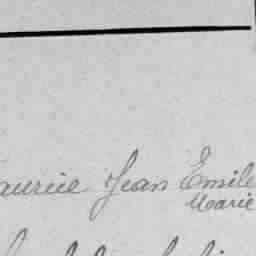 aurice Jean Emile
Marie